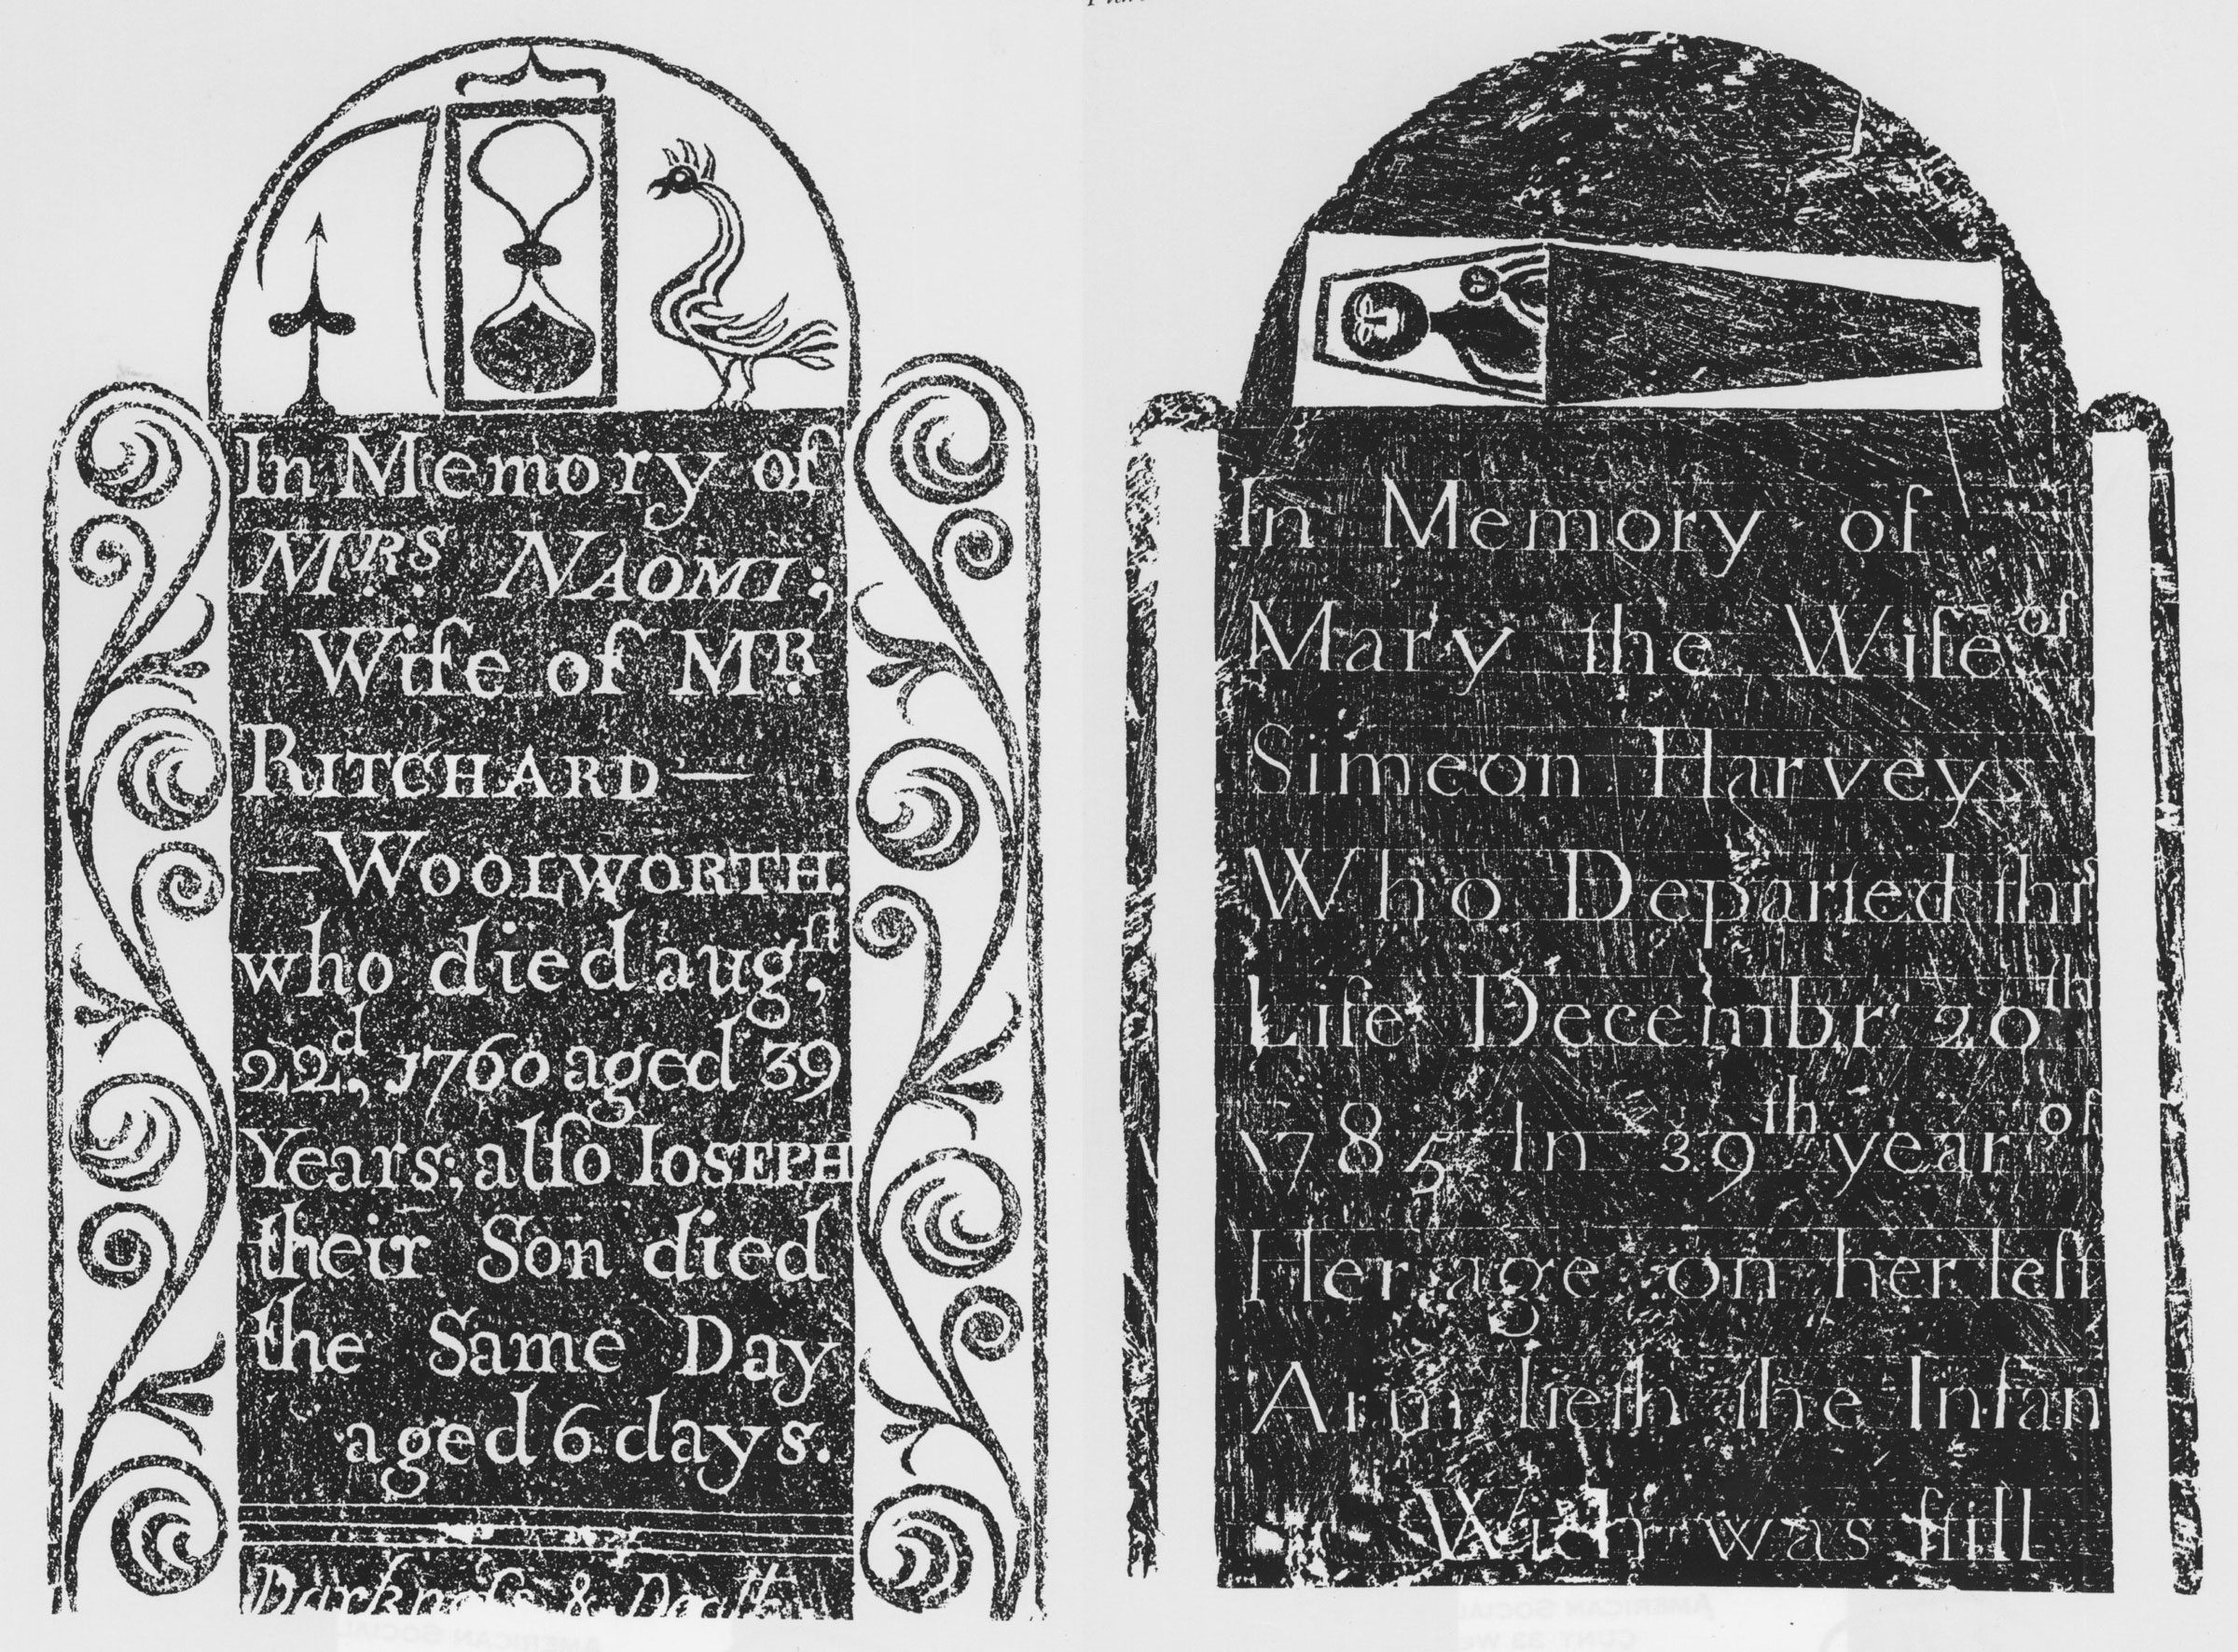 In Memory of
MRS. NAOMI;
Wife of MR.
RITCHARD —
— WOOLWORTH.
who died augſt,
22d, 1760 aged 39
Years; alſo IOSEPH
their Son died
the Same Day
aged 6 days.
Darkneſs & Death
In Memory of
Mary the Wife of
Simeon Harvey
Who Departed this
Life Decembr 20th
1785 In 39th year of
Her age on her left
Arm lieth the Infan
Wich was ſtill